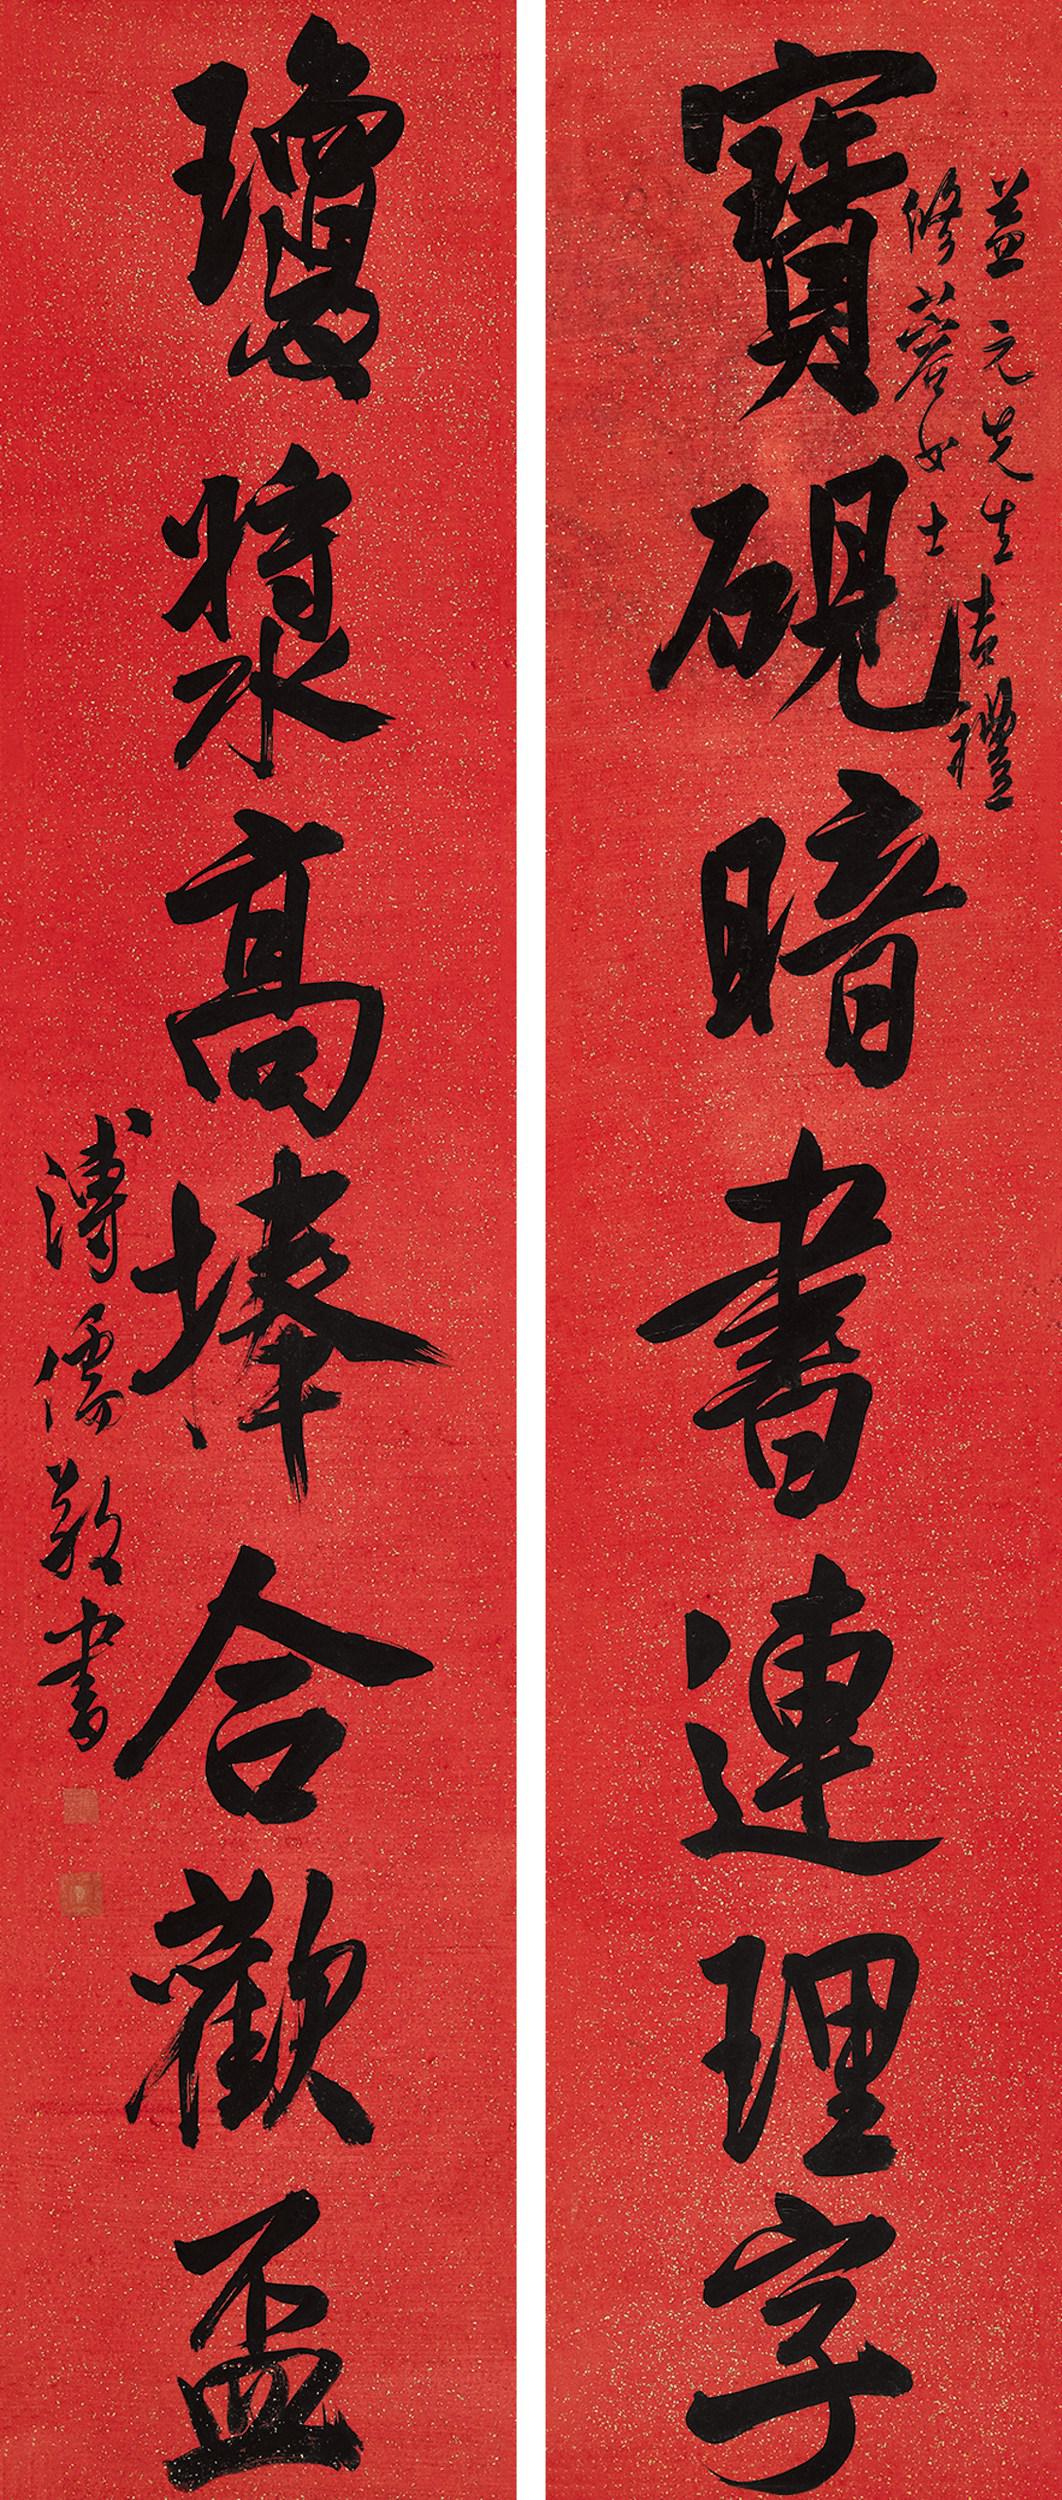 益元先生
修蓉女士
吉禮
寶硯暗書連理字
瓊漿高捧合歡盃
溥儒敬書